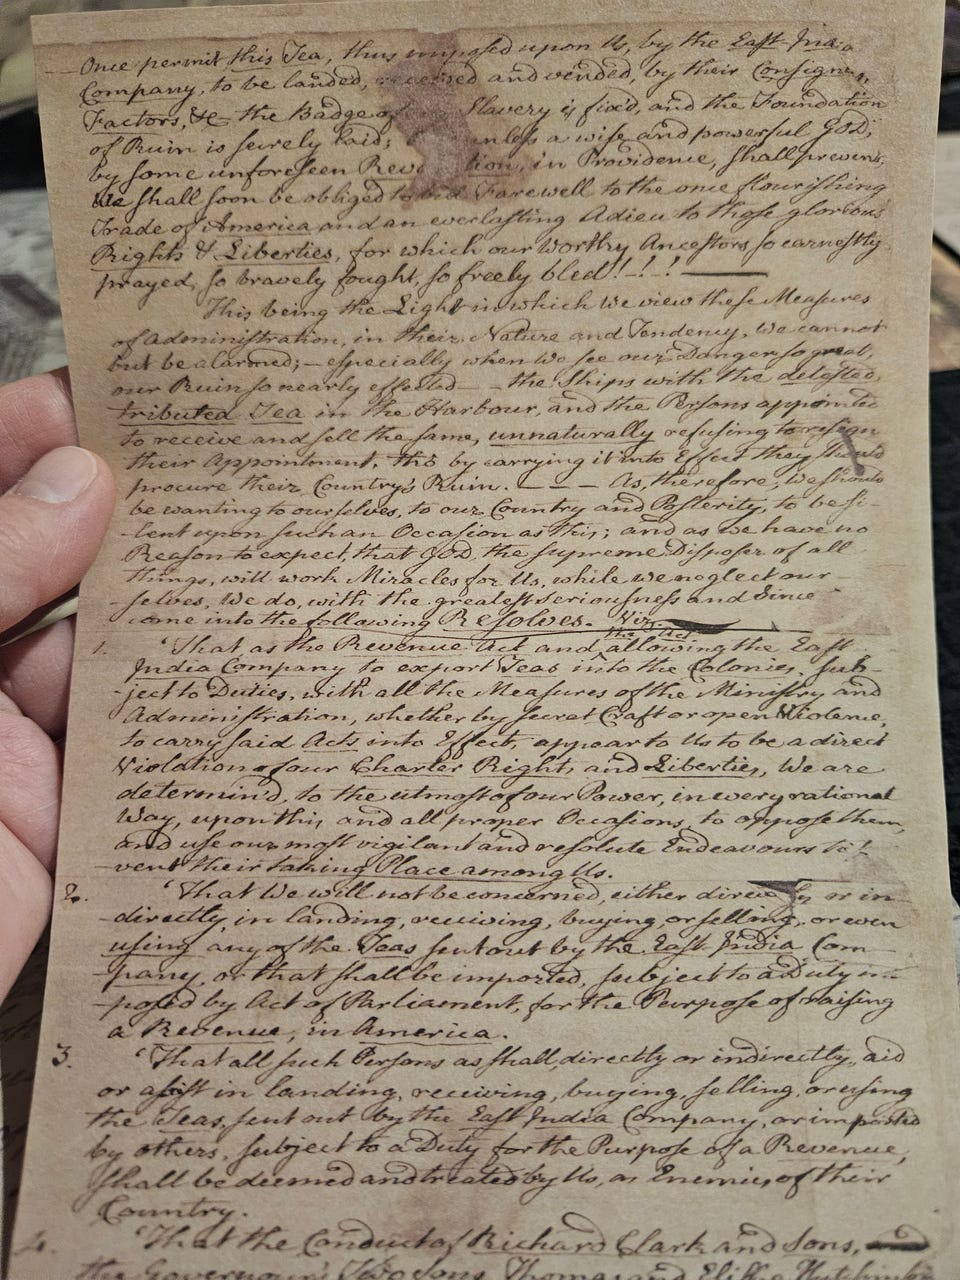 Once permit this Tea, thus imposed upon Us, by the East India
Company, to be landed, received and vended, by their Consignees,
Factors, &c the Badge of Slavery is fix'd, and the Foundation
of Ruin is surely laid; unless a wise and powerful God,
by some unforeseen Revolution, in Providence, shall prevent.
We shall soon be obliged to bid Farewell to the once flourishing
Trade of America, and an everlasting Adieu to those glorious
Rights & Liberties, for which our worthy Ancestors so earnestly
prayed, so bravely fought, so freely bled!—!—!
This being the Light in which We view these Measures
of Administration, in their Nature and Tendency, we cannot
but be alarmed; – especially when we see our Danger so great,
our Ruin so nearly effected — – the Ships with the detested,
tributed Tea in the Harbour, and the Persons appointed
to receive and sell the same, unnaturally refusing to resign
their Appointment, tho' by carrying it into Effect they should
procure their Country's Ruin. — — — As, therefore, We should
be wanting to ourselves, to our Country and Posterity, to be si-
-lent upon such an Occasion as this; and as we have no
Reason to expect, that God, the supreme Disposer of all
things, will work Miracles for Us, while we neglect our-
-selves, We do, with the greatest seriousness and Since
come into the following Resolves. Viz.
the Act
1. 'That as the Revenue Act and allowing the East
India Company to export Teas into the Colonies, sub-
-ject to Duties, with all the Measures of the Ministry and
Administration, whether by secret Craft or open Violence,
to carry said Acts into Effect, appear to Us to be a direct
Violation of our Charter Rights and Liberties, We are
determin'd, to the utmost of our Power, in every rational
Way, upon this, and all proper Occasions, to oppose them,
and use our most vigilant and resolute Endeavours to
vent their taking Place among Us.
2. 'That We will not be concerned, either directly or in
directly, in landing, receiving, buying, or selling, or even
using any of the Teas sent out by the East India Com-
pany, or that shall be imported, subject to a duty im-
-posed by Act of Parliament, for the Purpose of raising
a Revenue, in America.
3. 'That all such Persons as shall, directly or indirectly, aid
or assist in landing, receiving, buying, selling, or using
the Teas, sent out by the East India Company, or imported
by others, subject to a Duty for the Purpose of a Revenue,
shall be deemed and treated by Us, as Enemies of their
Country.
4. 'That the Conduct of Richard Clark and Sons,
the Governour's Two Sons Thomas and Elisha Hutchinson